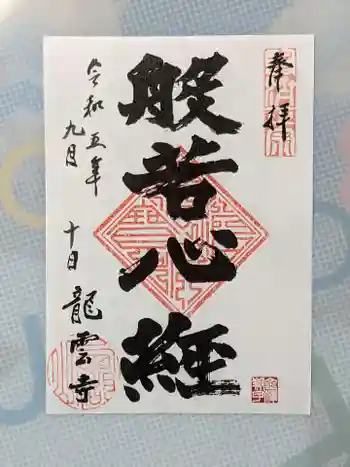 奉拝
般若心経
令和五年
九月十日
龍雲寺